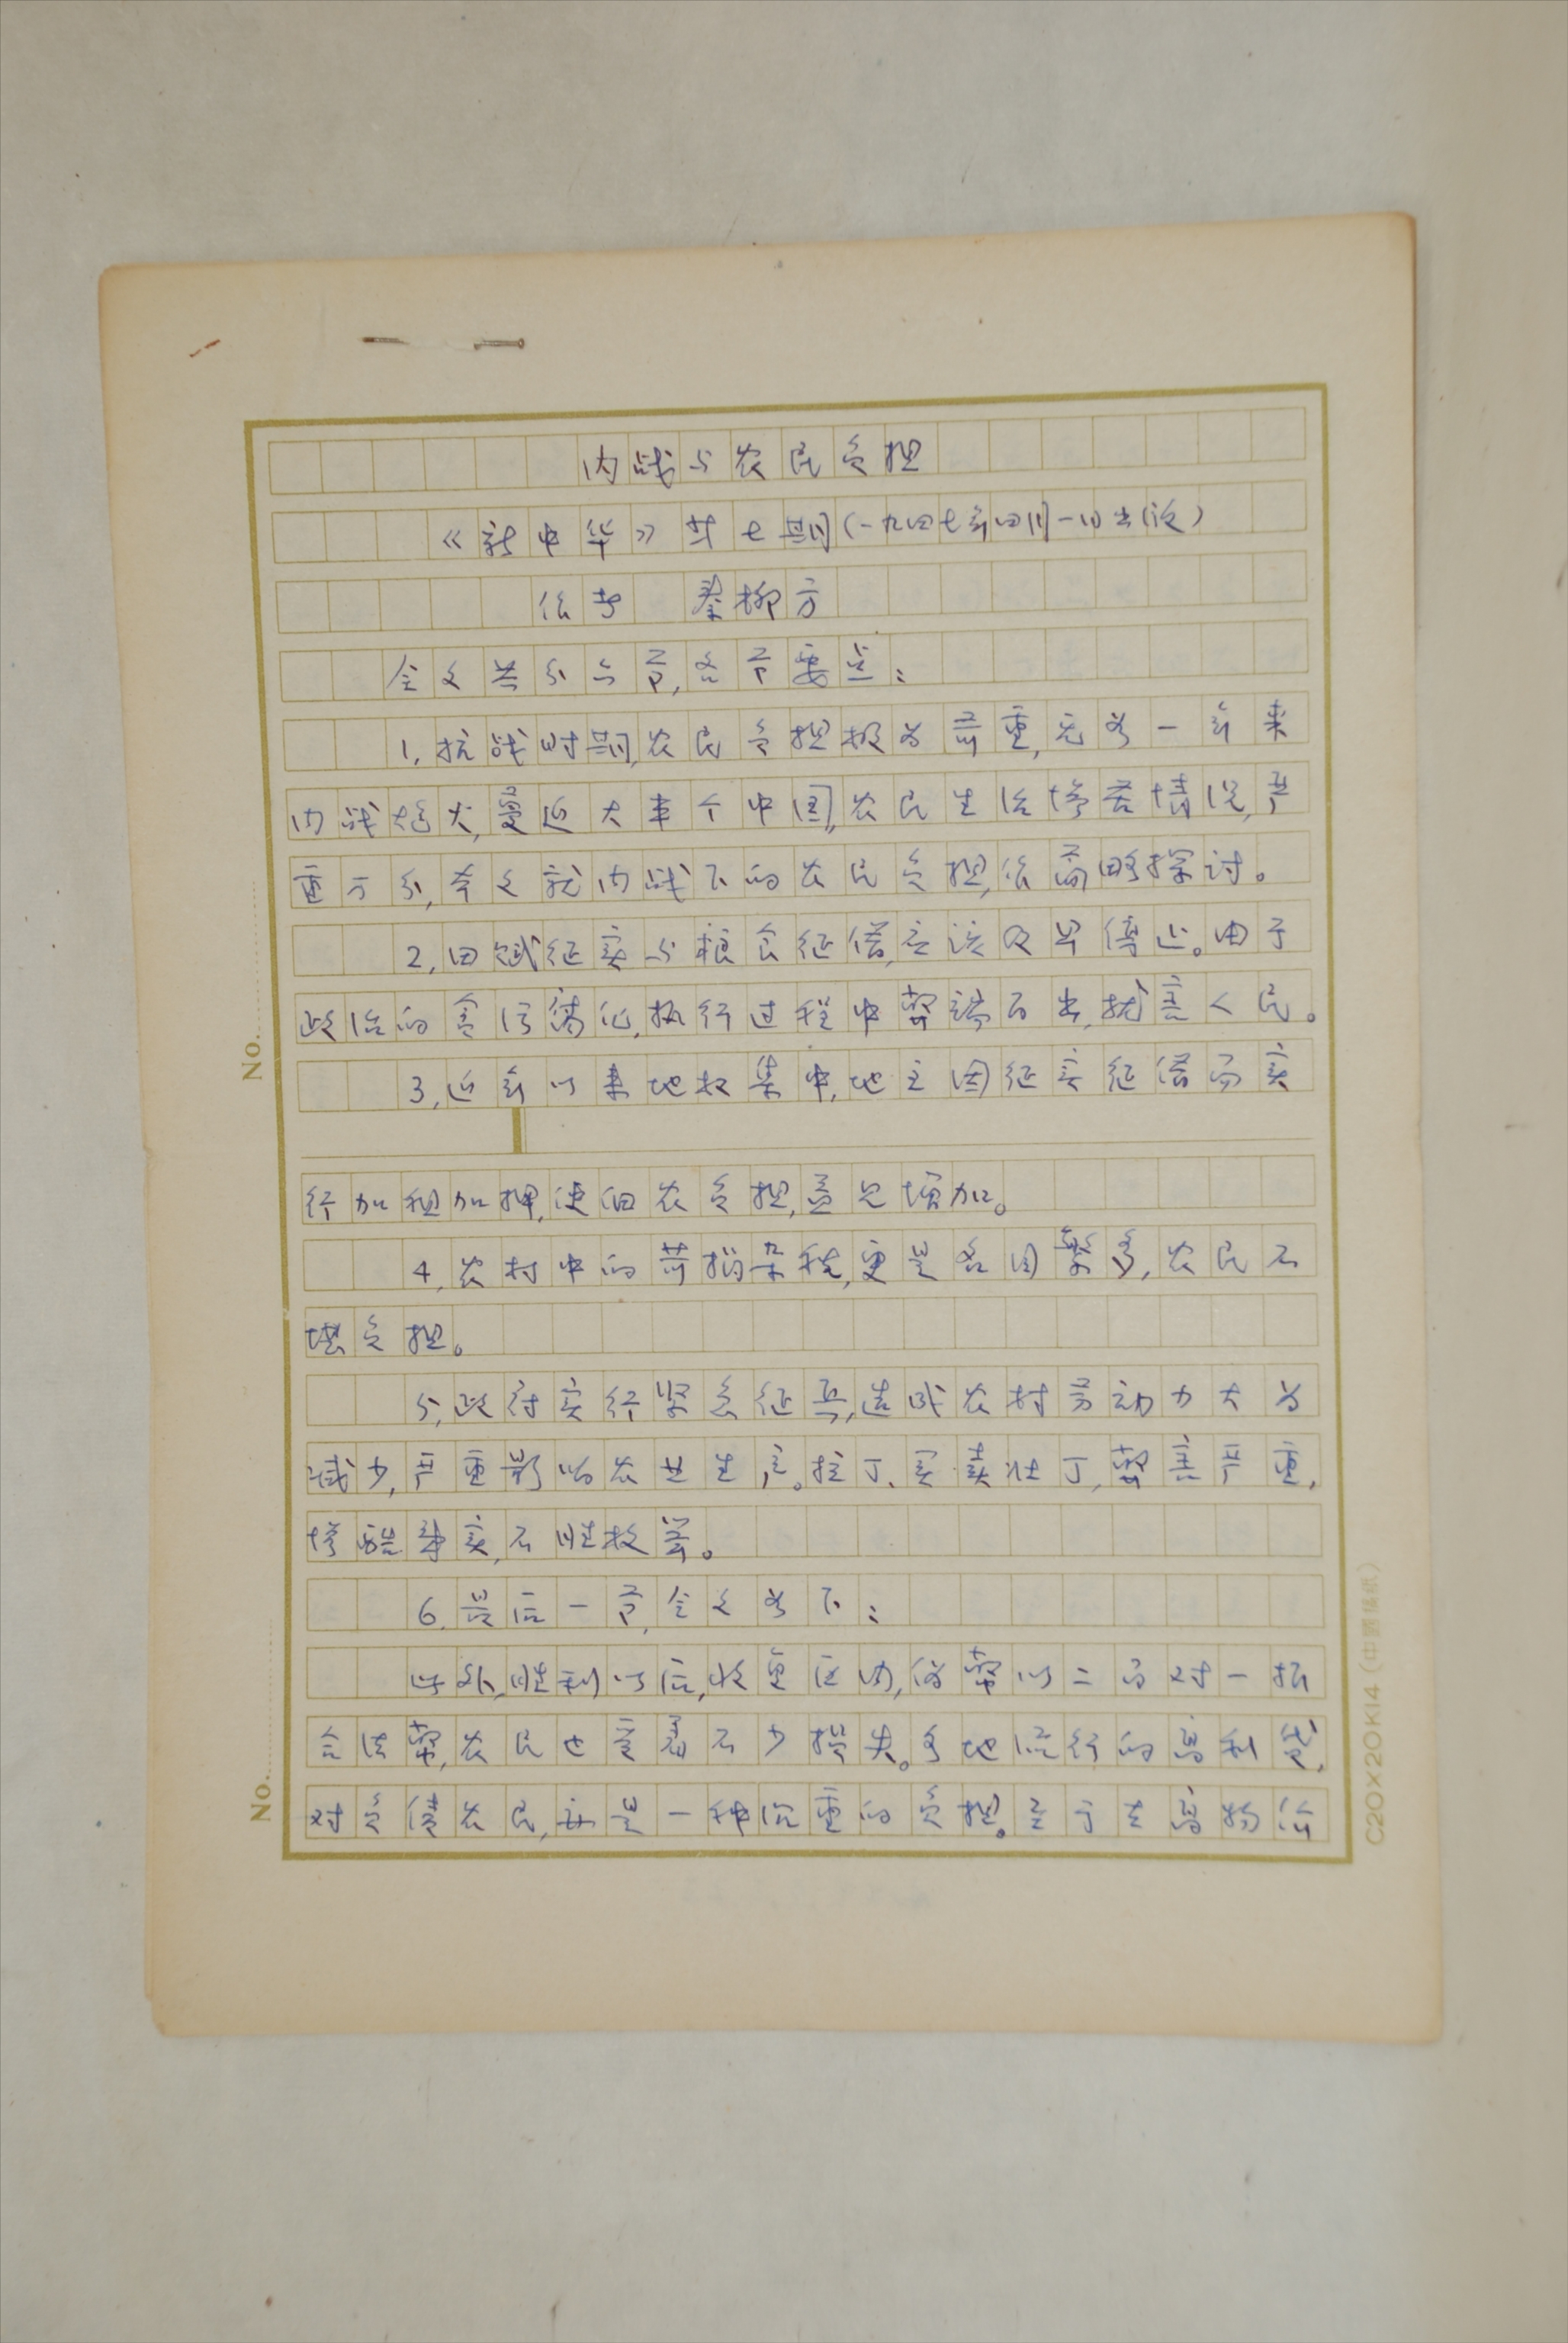 内战与农民负担
《新中华》廿七期(一九四七年四月一日出版)
作者 秦柳方
全文共分六节,各节要点:
1.抗战时期,农民负担极为苛重,尤为一年来
内战炮火,蔓延大半个中国,农民生活惨苦情况,严
重万分,本文就内战下的农民负担,作简略探讨。
2.田赋征实与粮食征借,应该及早停止。由于
政治的贪污腐化,执行过程中弊端百出,扰害人民。
3.近年以来地权集中,地主因征实征借而实
行加租加押,使佃农负担,益见增加。
4.农村中的苛捐杂税,更是名目繁多,农民不
堪负担。
5.政府实行紧急征兵,造成农村劳动力大为
减少,严重影响农业生产。拉丁、买卖壮丁,弊害严重,
惨酷事实,不胜枚举。
6.最后一节,全文如下:
此外,胜利以后,收复区内,伪币以二百对一折
合法币,农民也受着不少损失。各地流行的高利贷,
对负债农民,亦是一种沉重的负担。至于去高物价
No.
No.
C20X20K14(中国稿纸)